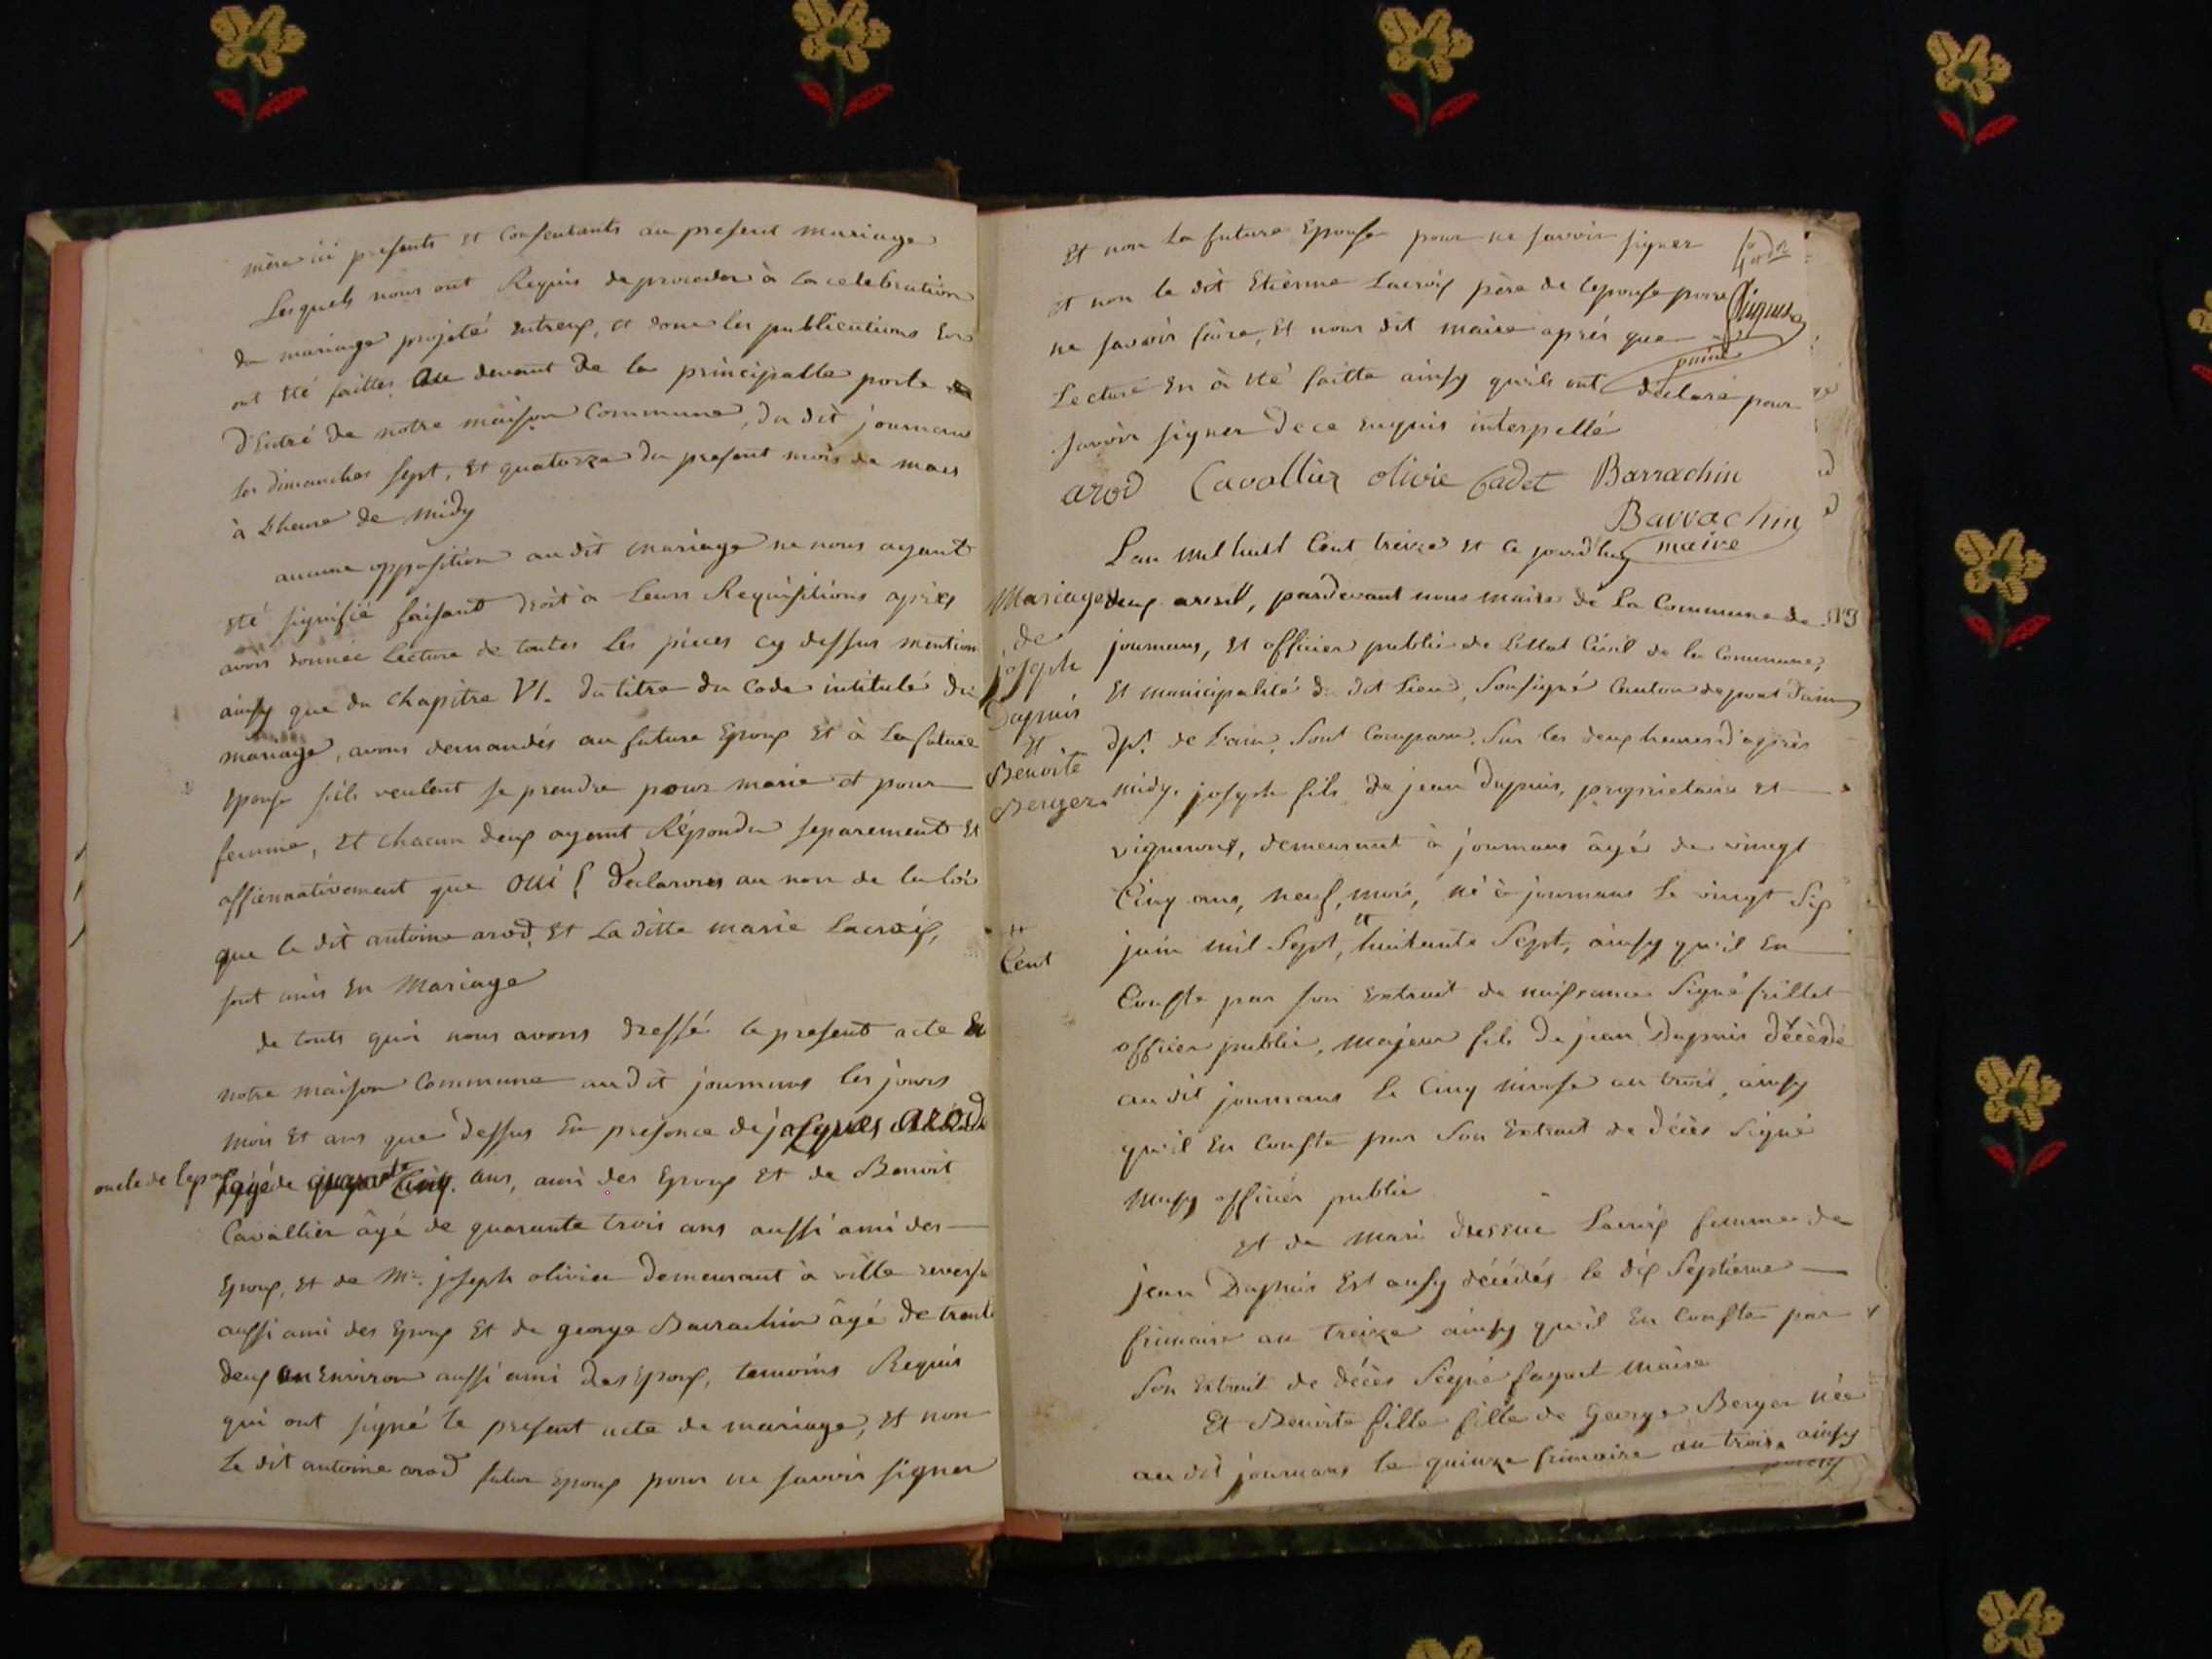 mère ici presents et Consentants au present mariage
Lesquels nous ont Requis de proceder à la celebration
du mariage projeté entreux, et donc les publications en
ont été faittes au devant de la principalle porte
d'Entré de notre maison Commune, du dit journans
les dimanches sept, et quatorze du present mois de mars
à L'heure de midy
aucune opposition au dit mariage ne nous ayant
été signifié faisant droit à Leurs Requisitions après
avoir donnée Lecture de toutes les pieces cy dessus mention
ainsy que du Chapitre VI. du titre du Code intitulé du
mariage, avons demandés au future Epoux Et à La future
Epouse s'ils veulent se prendre pour marie et pour
femme, Et chacun deux ayant Répondu separement Et
affirmativement que oui ! declarons au nom de la loi
que le dit antoine arod, Et La ditte marie Lacroix,
sont unis En Mariage
de touts quoi nous avons dressé le present acte En
notre maison Commune au dit journans les jours
mois Et ans que dessus En presence de jacques arod
oncle de lepoux agé de quarante Cinq ans, ami des Epoux Et de Benoit
Cavallier âgé de quarante trois ans aussi ami des
Epoux, Et de Mr. joseph olivier demeurant à ville reverse
aussi ami des Epoux Et de george Barrachin âgé de trente
deux an Environ aussi ami des Epoux, temoins Requis
qui ont signé le present acte de mariage, Et non
Le dit antoine arod futur Epoux pour ne savoir signer
Et non La future Epouse pour ne savoir signer
et non le dit Etienne Lacroix père de lepouse pour
ne savoir faire, Et nous dit maire après que
Lecture En à été faitte ainsy qu'ils ont déclaré pour
savoir signer de ce enquis interpellé
arod Cavallier olivie Cadet Barrachin
Barrachin
maire
L'an mil huit Cent treize et Ce jourd'huy
Mariage
de
joseph
Dupuis
Et
Benoite
Berger
deux avril, pardevant nous maire de La Commune de
journans, Et officier public de Lettat Civil de la Commune,
Et municipalité du dit Lieu, soussigné Canton de pont d'ain
dpt. de L'ain, sont Comparu. Sur les deux heures d'après
midy. joseph fils de jean Dupuis, proprietaire et
vigneront, demeurant à journans âgé de vingt
Cinq ans, neuf, mois, né à journans Le vingt Six
Cent
juin mil Sept, huitante Sept, ainsy qu'il En
Conste par son Extrait de naissance Signé frillet
officier public, Majeur fils de jean Dupuis décédé
au dit journans Le Cinq nivose an trois, ainsy
qu'il En Conste par Son Extrait de décès Signé
officier public
Et de Mari Lacroix femme de
jean Dupuis Est ausy décédés le dix Septieme
frimaire an treize ainsy qu'il En Conste par
Son Extrait de décès Signé maire
Et Benoite fille fille de George Berger née
au dit journans le quinze frimaire an trois, ainsy